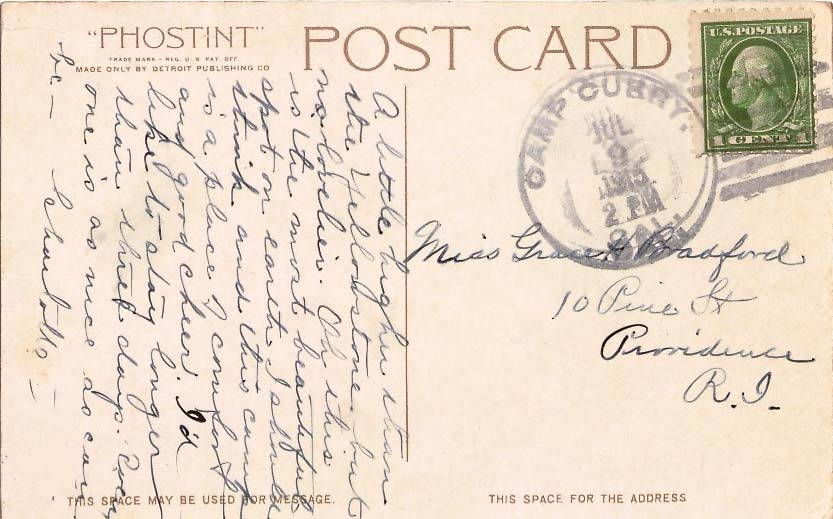 "PHOSTINT"
TRADE MARK - REG. U. S. PAT. OFF.
MADE ONLY BY DETROIT PUBLISHING CO
POST CARD
U.S. POSTAGE
1 CENT 1
CAMP CURRY,
JUL
9
2 PM
CAL.
A little higher than
the Yellowstone but
no lovelier. Oh this
is the most beautiful
spot on earth I should
think and this camp
is a place of comfort
and good cheer. I'd
like to stay longer
than three days. Every
one is as nice as can
be —
Charlotte —
Miss Grace H Bradford
10 Pine St
Providence
R.I.
THIS SPACE MAY BE USED FOR MESSAGE.
THIS SPACE FOR THE ADDRESS